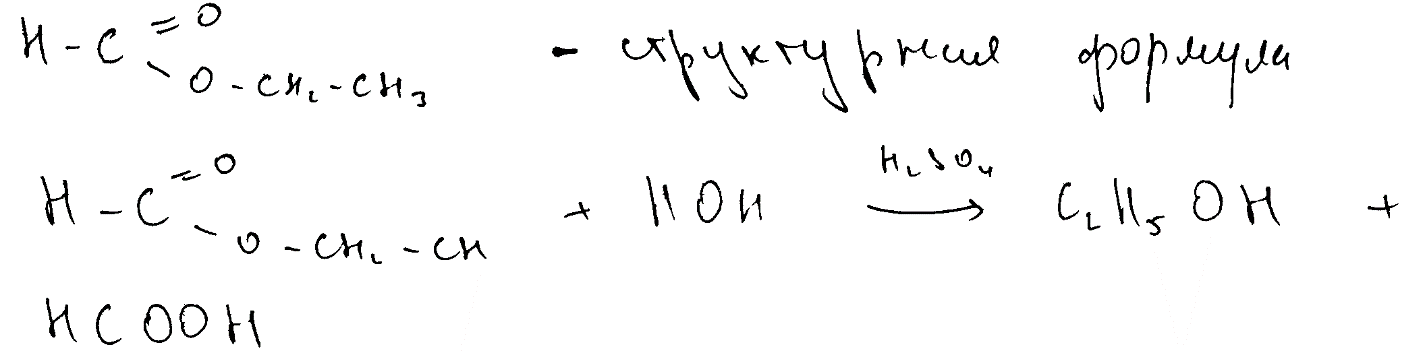 H - C = O \ O - CH₂ - CH₃ - структурная формула
H - C = O \ O - CH₂ - CH + HOH → H₂SO₄ C₂H₅OH +
HCOOH